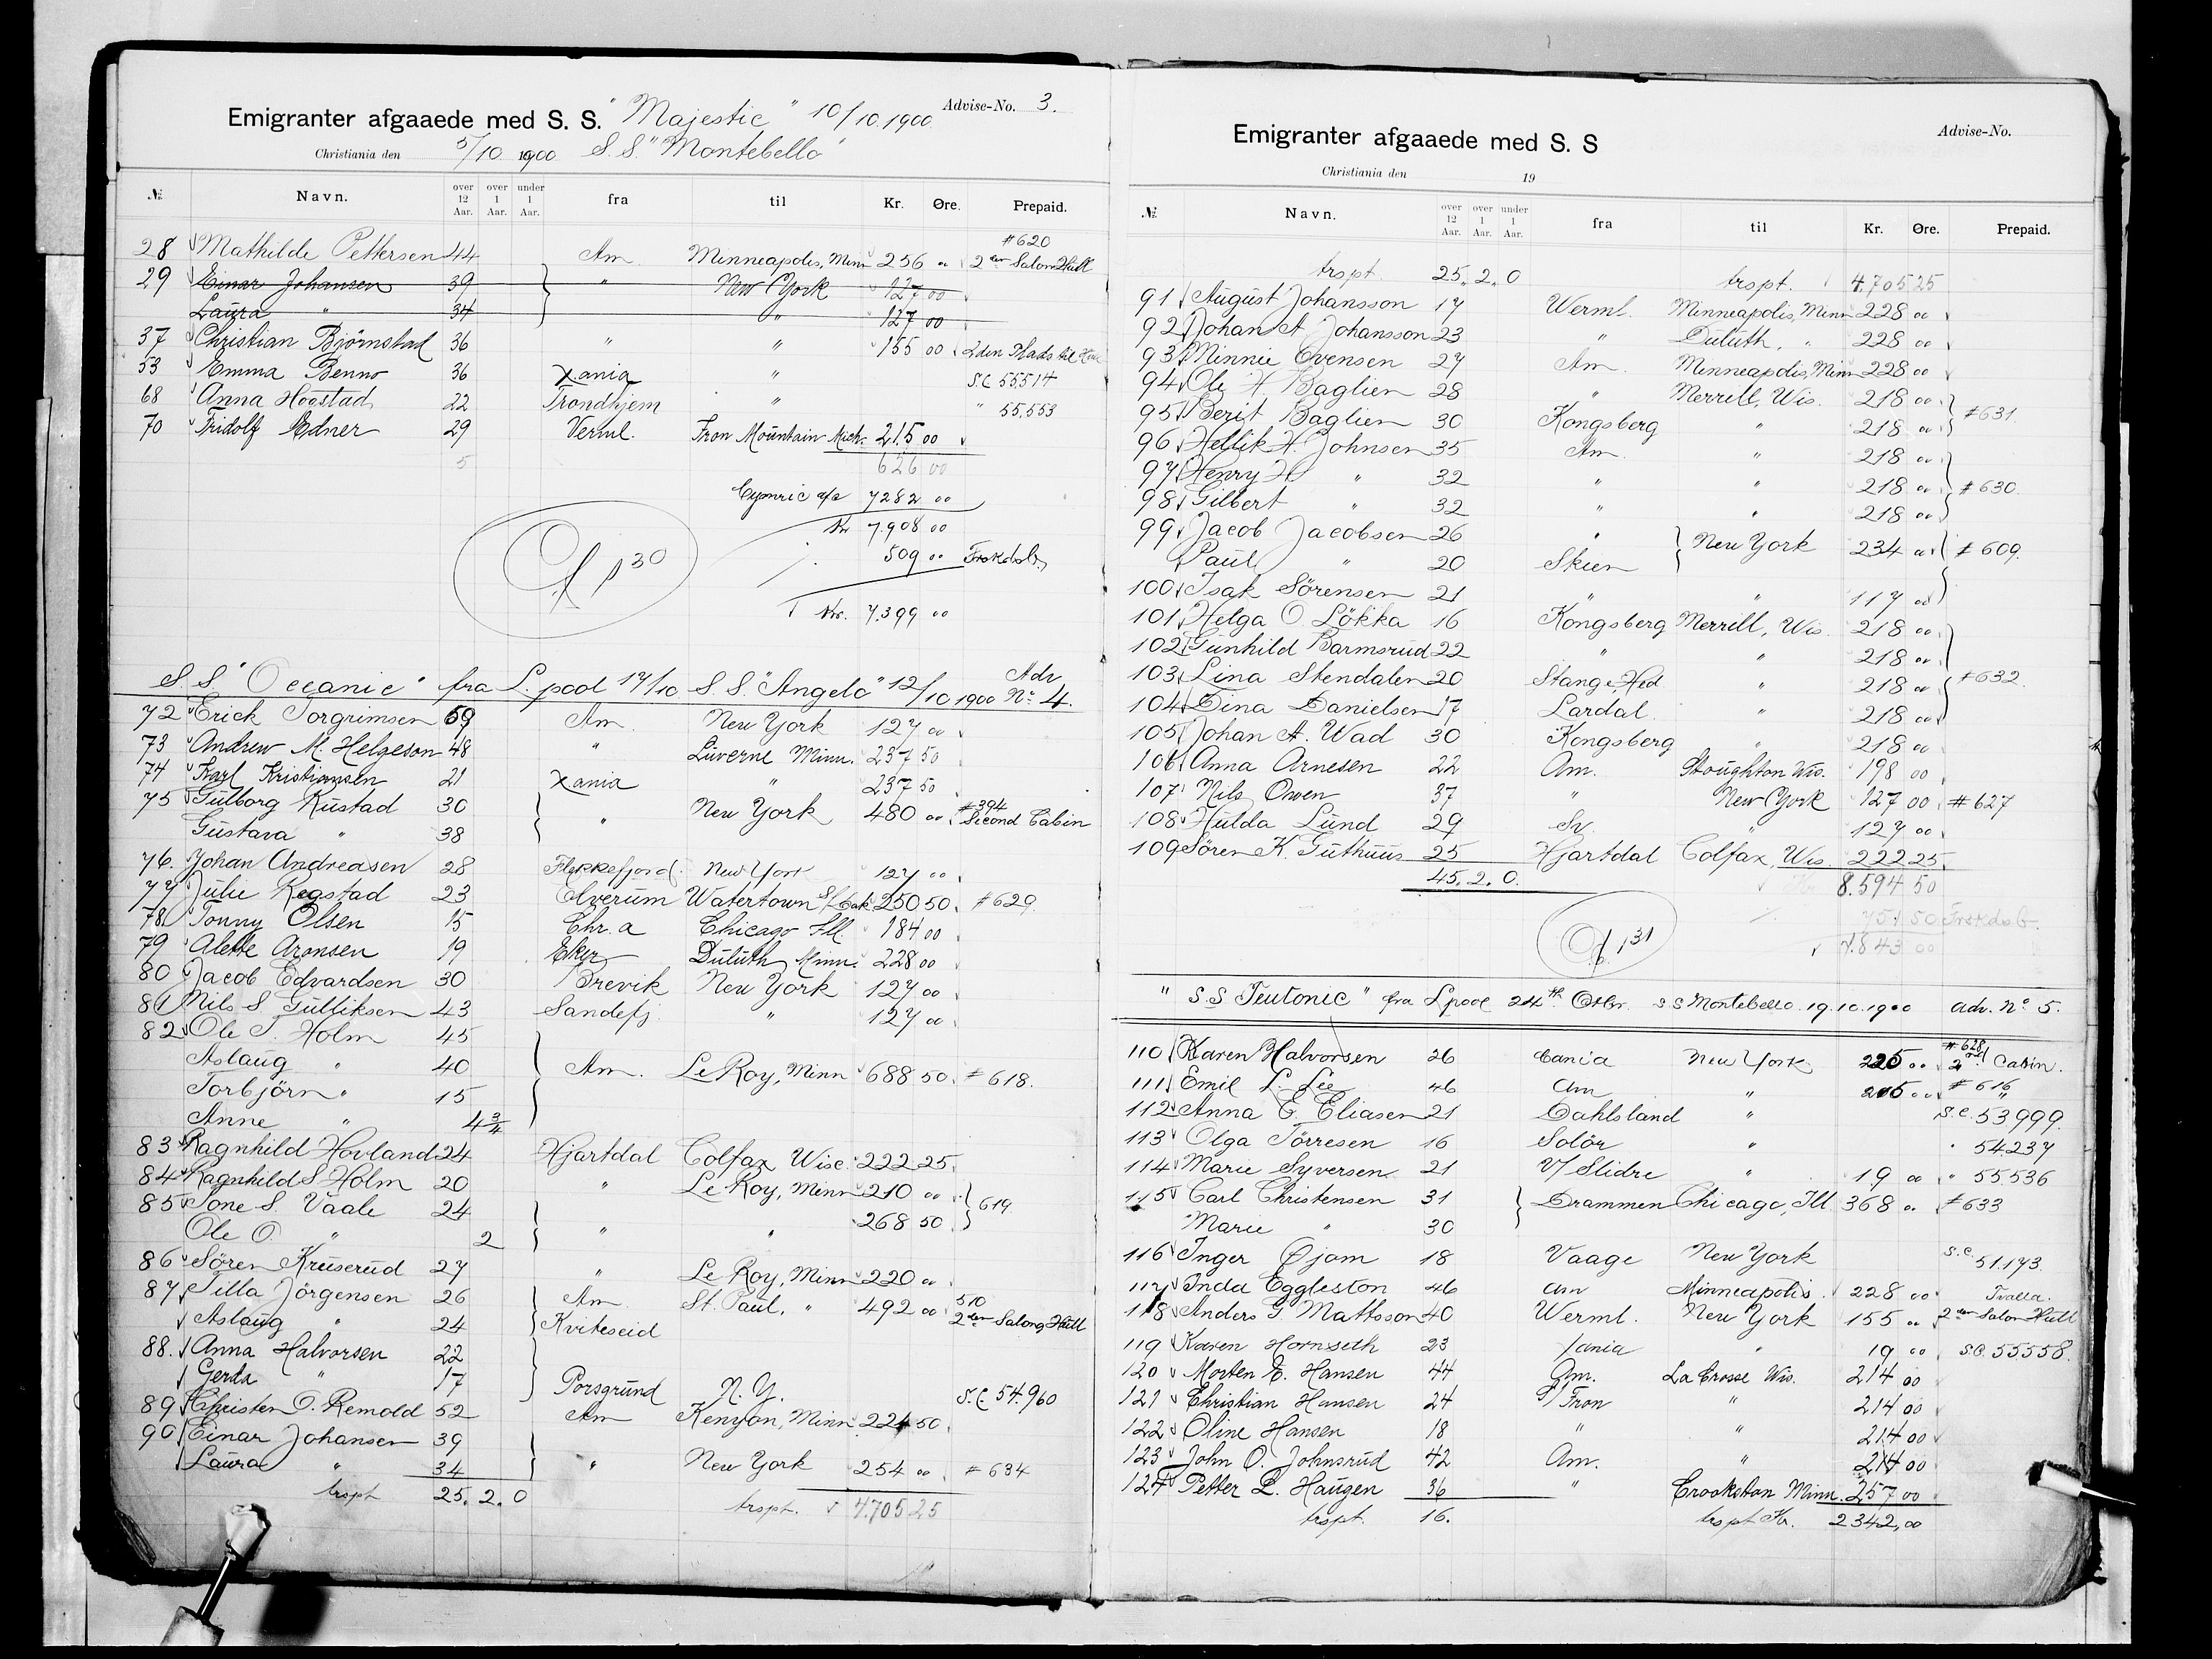 Emigranter afgaaede med S. S. "Majestic" 10/10.1900 Advise-No. 3.
Christiania den 5/10 1900 S.S. "Montebello"
№ Navn. over 12 Aar. over 1 Aar. under 1 Aar. fra til Kr. Øre. Prepaid.
28 Mathilde Pettersen 44 Am Minneapolis, Minn 256 " #620 2den Salon Hull
29 Einar Johansen 39 " New York 127 00
Laura " 34 " 127 00
37 Christian Björnstad 36 " " 155 00 2den Plads til
53 Emma Benno 36 Xania " S.C. 55514
68 Anna Hogstad 22 Trondhjem " " 55,553
70 Fridolf Edner 29 Verml. Iron Mountain Mich. 215 00
5 626 00
Cymric 7282 00
Kr 7.908 00
509 " Frskdsb.
Kr. 7.399 00
S.S. "Oceanic" fra L.pool 17/10 S.S. "Angelo" 12/10 1900 Adv No. 4.
72 Erick Torgrimsen 69 Am New York 127 00
73 Andrew M. Helgeson 48 " Luverne Minn. 237 50
74 Karl Kristiansen 21 Xania " 237 50
75 Gulborg Rustad 30 " New York 480 00 #394 Second Cabin
Gustava " 38
76. Johan Andreasen 28 Flekkefjord. New York 127 00
77 Julie Regstad 23 Elverum Watertown S/Dak 250 50 #629
78 Tonny Olsen 15 Chr.a Chicago Ill. 184 00
79 Alette Aronsen 19 Eker Duluth Minn. 228 00
80 Jacob Edvardsen 30 Brevik New York 127 00
81 Nils S Gulliksen 43 Sandefj. " 127 00
82 Ole T. Holm 45
Aslaug " 40 Am. Le Roy, Minn 688 50 #618.
Torbjörn " 15
Anne " 4 3/4
83 Ragnhild Hovland 24 Hjartdal Colfax Wisc. 222 25
84 Ragnhild S Holm 20 " Le Roy, Minn 210 00 619
85 Tone S. Vaale 24 " " 268 50
Ole O. " 2
86 Sören Kruserud 27 " Le Roy, Minn 220 00
87 Tilla Jörgensen 26 Am St. Paul, " 492 00 510 2den Salong Hull
Aslaug " 24 Kviteseid
88. Anna Halvorsen 22
Gerda " 17 Porsgrund N.Y. S.C. 54.960
89 Christen O. Remold 52 Am Kenyon, Minn 224 50
90 Einar Johansen 39
Laura " 34 " New York 254 00 #634
trspt 25. 2. 0 trspt. 4.705 25
Emigranter afgaaede med S. S Advise-No.
Christiania den 19
№ Navn. over 12 Aar. over 1 Aar. under 1 Aar. fra til Kr. Øre. Prepaid.
trspt. 25. 2. 0 trspt. 4.705 25
91 August Johansson 17 Werml. Minneapolis, Minn 228 00
92 Johan A Johansson 23 " Duluth, " 228 00
93 Minnie Evensen 27 Am Minneapolis, Minn 228 00
94 Ole H. Baglien 28 " Merrill, Wis. 218 00
95 Berit Baglien 30 Kongsberg " 218 00 #631
96 Hellik H. Johnsen 35 Am. " 218 00
97 Henry H " 32 " " 218 00 #630.
98 Gilbert " 32 " " 218 00
99 Jacob Jacobsen 26 " New York 234 00 #609.
Paul " 20 Skien
100 Isak Sörensen 21 " " 117 00
101 Helga O. Lökka 16 Kongsberg Merrill, Wis. 218 00
102 Gunhild Barmsrud 22 " " 218 00
103 Lina Stendalen 20 Stange, Hed " 218 00 #632.
104 Dina Danielsen 17 Lardal " 218 00
105 Johan A. Wad 30 Kongsberg " 218 00
106 Anna Arnesen 22 Am. Stoughton Wis. 198 00
107 Nils Owen 37 " New York 127 00 #627
108 Hulda Lund 29 Sv. " 127 00
109 Sören K. Guthuus 25 Hjartdal Colfax, Wis. 222 25
45. 2. 0. Kr 8.594 50
751 50 Frskdsb.
7.843 00
"S.S Teutonic" fra Lpool 24th Octbr. SS Montebello. 19.10.1900 adv. No. 5.
110 Karen Halvorsen 26 Xania New York 225 00 #628 2nd Cabin.
111 Emil L. Lee 46 Am " 205 00 #616 "
112 Anna E. Eliasen 21 Dahlsland " S.C. 53999.
113 Olga Törresen 16 Solör " " 54237
114 Marie Syversen 21 V/Slidre " 19 00 " 55.536
115 Carl Christensen 31 Drammen Chicago, Ill. 368 00 #633
Marie " 30
116 Inger Øjom 18 Vaage New York S.C. 51.173.
117 Inda Eggleston 46 Am Minneapolis 228 00
118 Anders G Mattsson 40 Werml. New York 155 00 2den Salon Hull
119 Karen Hornseth 23 Xania " 19 00 S.C. 55.558.
120 Morten E. Hansen 44 Am. La Crosse Wis. 214 00
121 Christian Hansen 24 S/Fron " 214 00
122 Oline Hansen 18 " " 214 00
123 John O. Johnsrud 42 Am. " 214 00
124 Petter L. Haugen 36 " Crookston Minn. 257 00
trspt. 16. trspt Kr. 2342,00